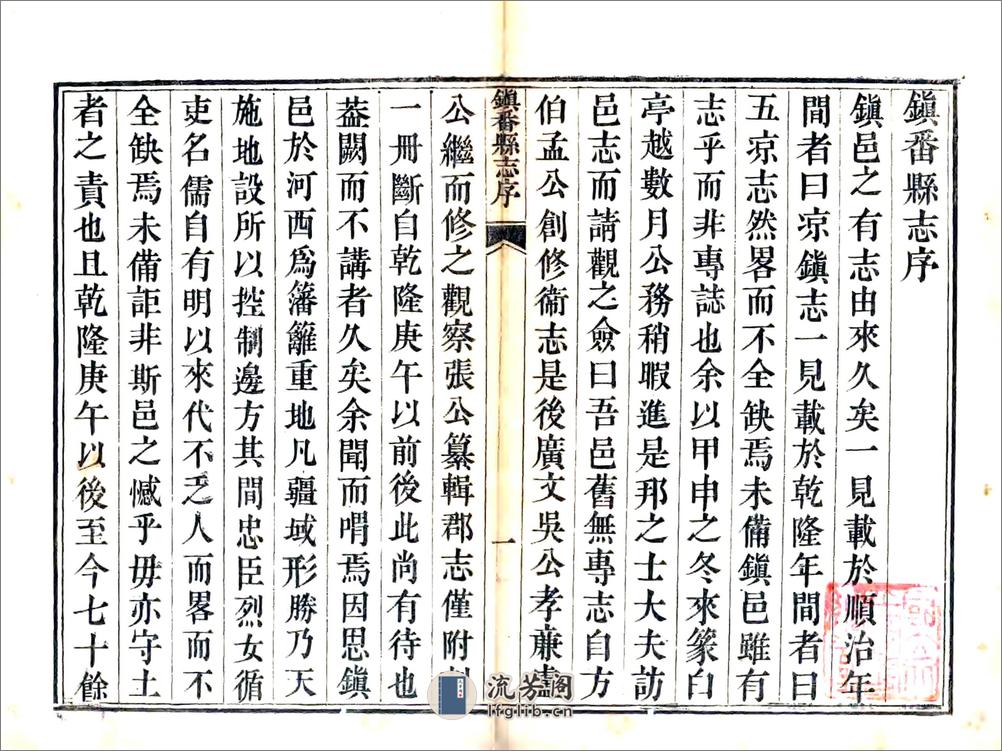 鎮番縣志序
鎮邑之有志由來久矣一見載於順治年
間者曰凉鎮志一見載於乾隆年間者曰
五凉志然畧而不全缺焉未備鎮邑雖有
志乎而非專誌也余以甲申之冬來篆白
亭越數月公務稍暇進是邦之士大夫訪
邑志而請觀之僉曰吾邑舊無專志自方
伯孟公創修衛志是後廣文吳公孝亷盧
鎮番縣志序
一
公繼而修之觀察張公纂輯郡志僅附刻
一冊斷自乾隆庚午以前後此尚有待也
葢闕而不講者久矣余聞而喟焉因思鎮
邑於河西爲籓籬重地凡疆域形勝乃天
施地設所以控制邊方其間忠臣烈女循
吏名儒自有明以來代不乏人而畧而不
全缺焉未備詎非斯邑之憾乎毋亦守土
者之責也且乾隆庚午以後至今七十餘
流芳閣
lfglib.cn